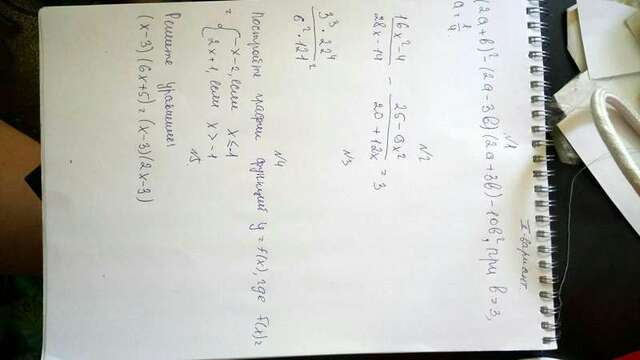 I-вариант.
N1
(2a+b)² - (2a-3b)(2a+3b) - 10b², при b=3,
a = 1/4
N2
(16x²-4)/(28x-14) - (25-9x²)/(20+12x) = 3
N3
(3³ · 22⁴)/(6² · 121²)
N4
Постройте график функции y = f(x), где f(x) =
= { -x-2, если x ≤ -1
2x+1, если x > -1
N5.
Решите уравнение:
(x-3)(6x+5) = (x-3)(2x-3)